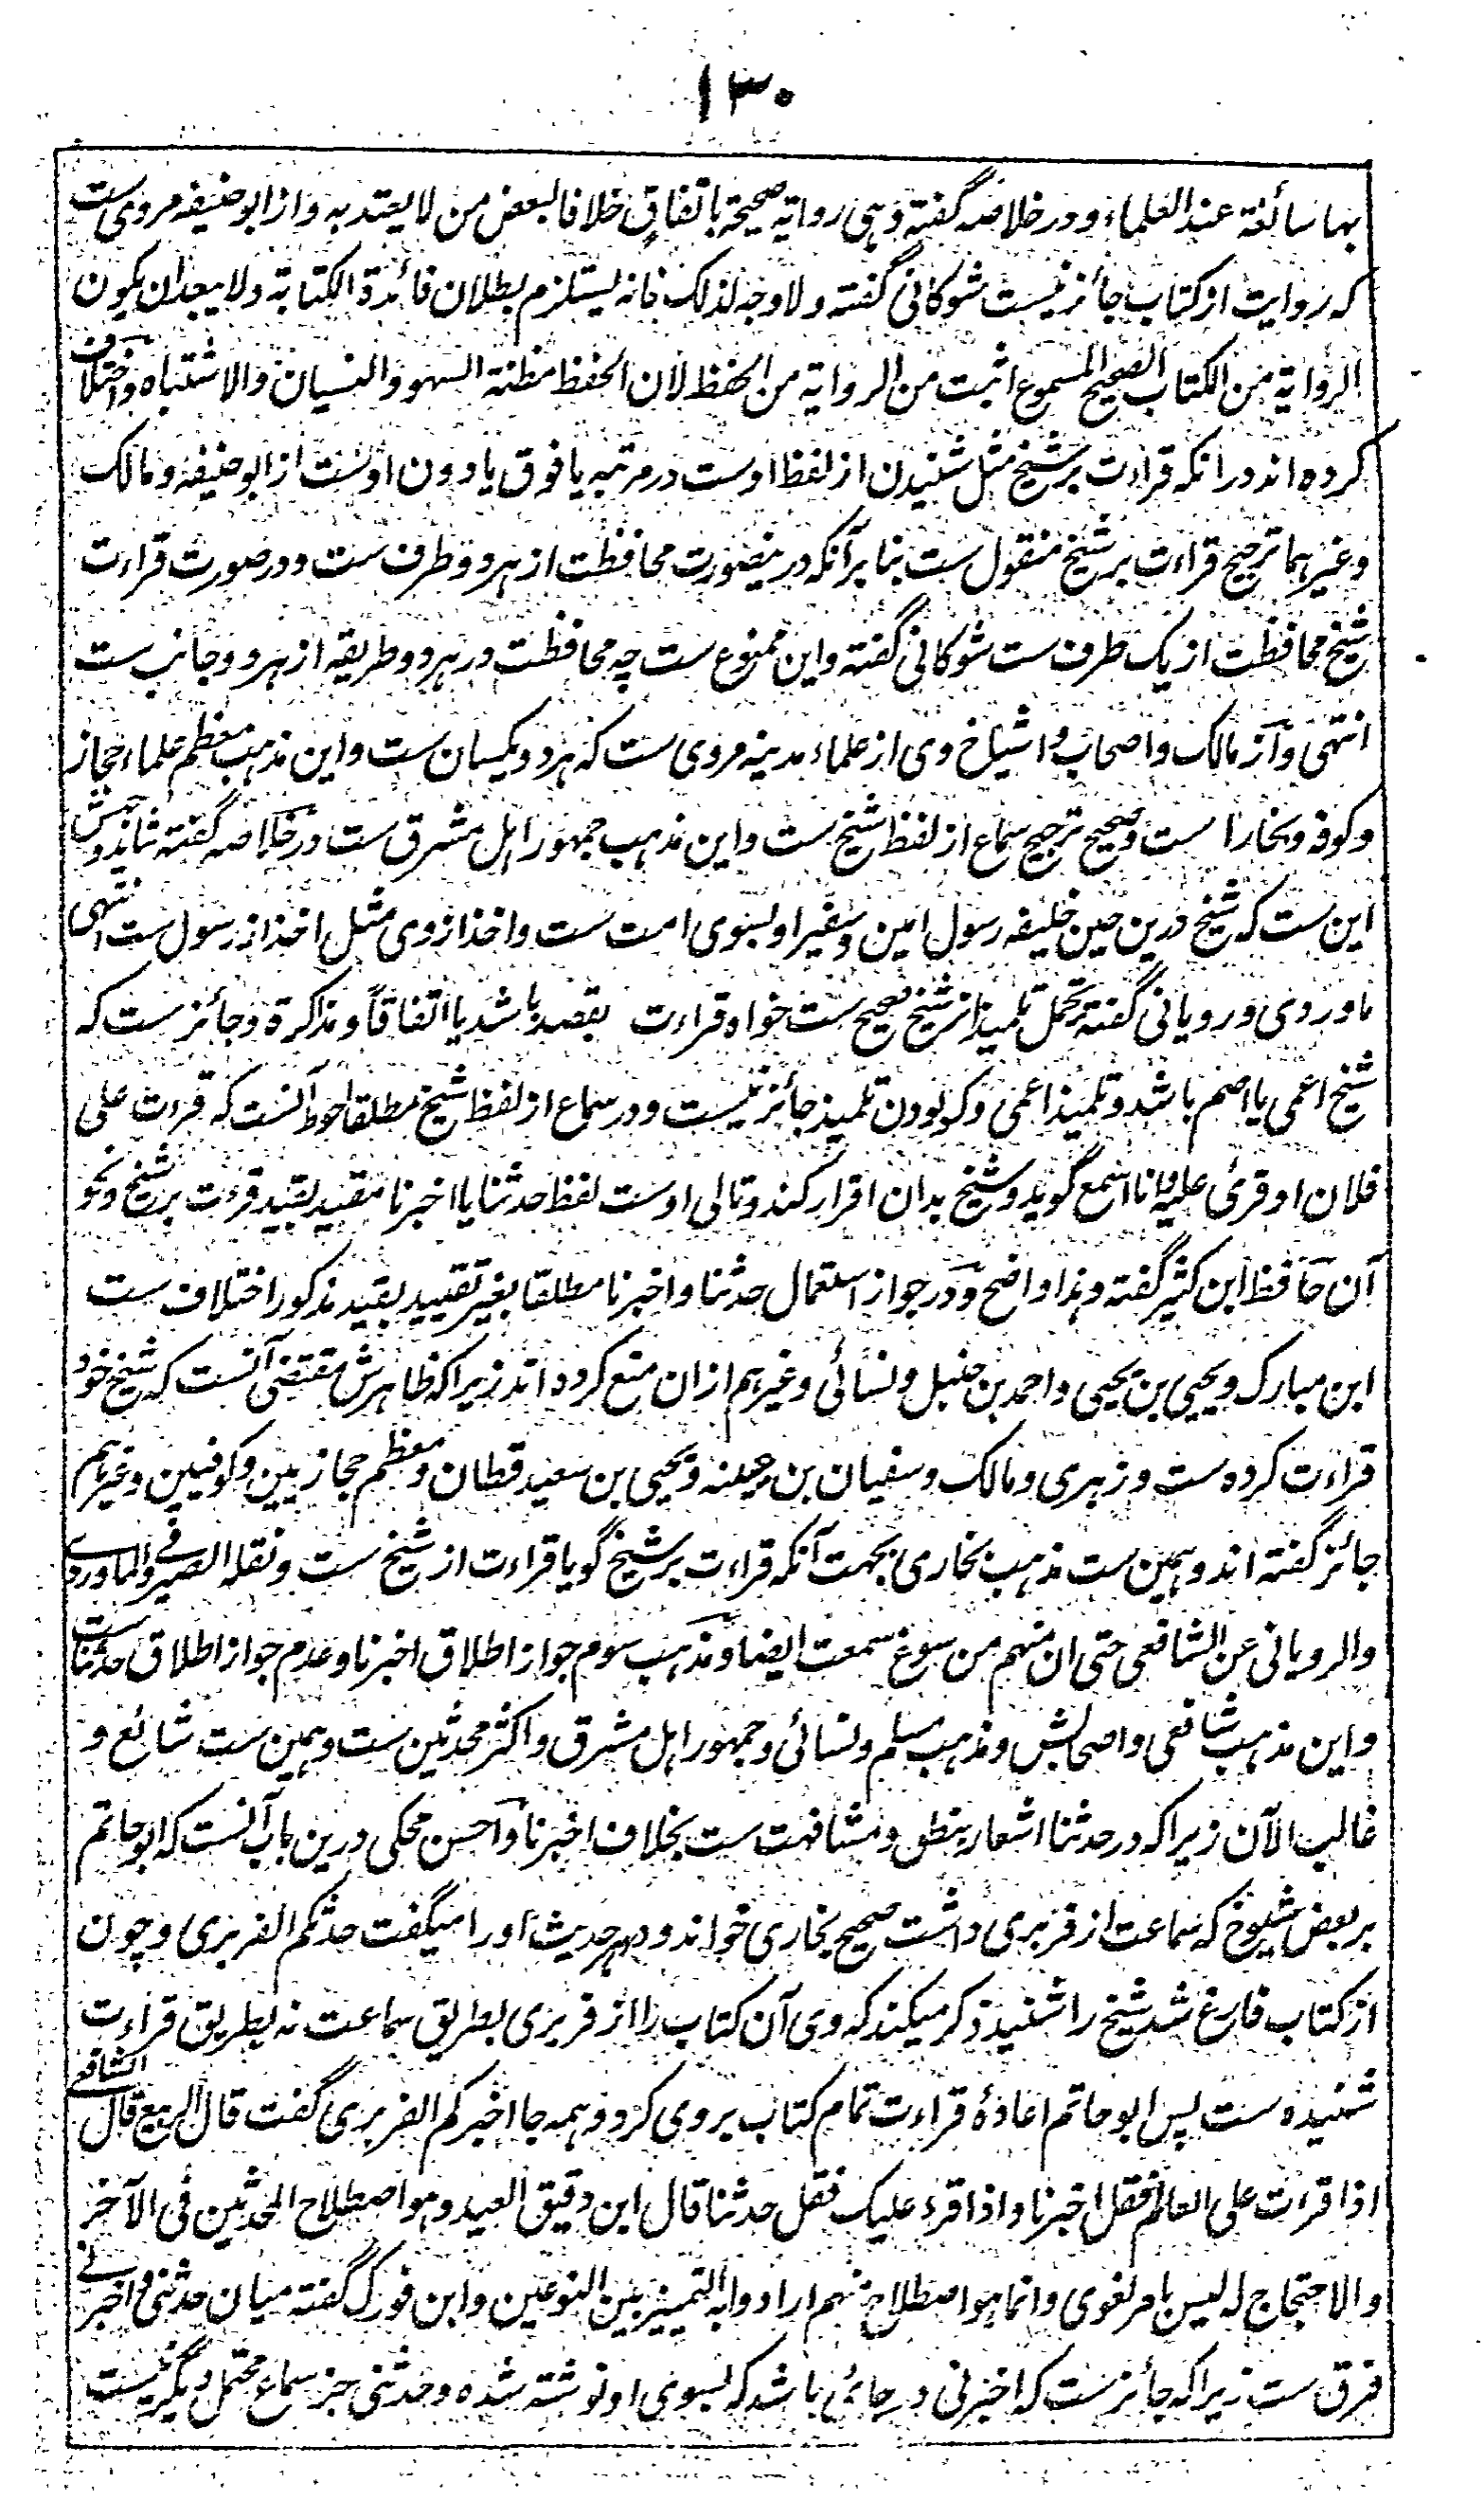 ۱۳۰
بها سائغة عند العلماء و در خلاصه گفته و هى رواية صحيحة باتفاق خلافا لبعض من لا يعتد به و از ابو حنيفه مروى ست
كه روايت از كتاب جائز نيست شوكانى گفته و لا وجه لذلك فانه يستلزم بطلان فائدة الكتابة و لا يبعد ان يكون
الرواية من الكتاب الصحيح المسموع اثبت من الرواية من الحفظ لان الحفظ مظنة السهو و النسيان و الاشتباه و اختلاف
كرده اند در انكه قراءت بر شيخ مثل شنيدن از لفظ اوست در مرتبه يا فوق يا دون اوست از ابو حنيفه و مالك
و غيرهما ترجيح قراءت بر شيخ منقول ست بنا بر آنكه درينصورت محافظت از هر دو طرف ست و در صورت قراءت
شيخ محافظت از يك طرف ست شوكانى گفته و اين ممنوع ست چه محافظت در هر دو طريقه از هر دو جانب ست
انتهى و از مالك و اصحاب و اشياخ وى از علماء مدينه مروى ست كه هر دو يكسان ست و اين مذهب معظم علماء حجاز
و كوفه و بخارا ست و صحيح ترجيح سماع از لفظ شيخ ست و اين مذهب جمهور اهل مشرق ست در خلاصه گفته شايد وجهش
اين ست كه شيخ درين حين خليفه رسول امين و سفير او بسوى امت ست و اخذ از وى مثل اخذ از رسول ست انتهى
ماوردى و رويانى گفته تحمل تلميذ از شيخ صحيح ست خواه قراءت بقصد باشد يا اتفاقاً و مذاكرة و جائز ست كه
شيخ اعمى يا اصم باشد و تلميذ اعمى و كر بودن تلميذ جائز نيست و در سماع از لفظ شيخ مطلقا احوط آنست كه قرءت على
فلان او قرئ عليه و انا اسمع گويد و شيخ بدان اقرار كند و تالى اوست لفظ حدثنا يا اخبرنا مقيد بقيد قرءت بر شيخ و نحو
آن حافظ ابن كثير گفته و هذا واضح و در جواز استعمال حدثنا و اخبرنا مطلقا بغير تقييد بقيد مذكور اختلاف ست
ابن مبارك و يحيى بن يحيى و احمد بن حنبل و نسائى و غيرهم ازان منع كرده اند زيرا كه ظاهرش مقتضى آنست كه شيخ خود
قراءت كرده ست و زهرى و مالك و سفيان بن عيينه و يحيى بن سعيد قطان و معظم حجازيين و كوفيين و غيرهم
جائز گفته اند و همين ست مذهب بخارى بجهت آنكه قراءت بر شيخ گويا قراءت از شيخ ست و نقله الصيرفى و الماوردى
و الرويانى عن الشافعى حتى ان منهم من سوغ سمعت ايضا و مذهب سوم جواز اطلاق اخبرنا و عدم جواز اطلاق حدثنا ست
و اين مذهب شافعى و اصحابش و مذهب مسلم و نسائى و جمهور اهل مشرق و اكثر محدثين ست و همين ست شائع و
غالب الآن زيرا كه در حدثنا اشعار بنطق و مشافهت ست بخلاف اخبرنا و احسن محكى درين باب آنست كه ابو حاتم
بر بعض شيوخ كه سماعت از فربرى داشت صحيح بخارى خواند و بهر حديث او را ميگفت حدثكم الفربرى و چون
از كتاب فارغ شد شيخ را شنيد ذكر ميكند كه وى آن كتاب را از فربرى بطريق سماعت نه بطريق قراءت
شنيده ست پس ابو حاتم اعادهٔ قراءت تمام كتاب بروى كرد و همه جا اخبركم الفربرى گفت قال الربيع قال الشافعى
اذا قرات على العالم فقل اخبرنا و اذا قرء عليك فقل حدثنا قال ابن دقيق العيد و هو اصطلاح المحدثين فى الآخر
و الاحتجاج له ليس بامر لغوى و انما هو اصطلاح منهم ارادوا به التمييز بين النوعين و ابن فورك گفته ميان حدثنى و اخبرنى
فرق ست زيرا كه جائز ست كه اخبرنى در جائى باشد كه بسوى او نوشته شده و حدثنى جز سماع محتمل ديگر نيست